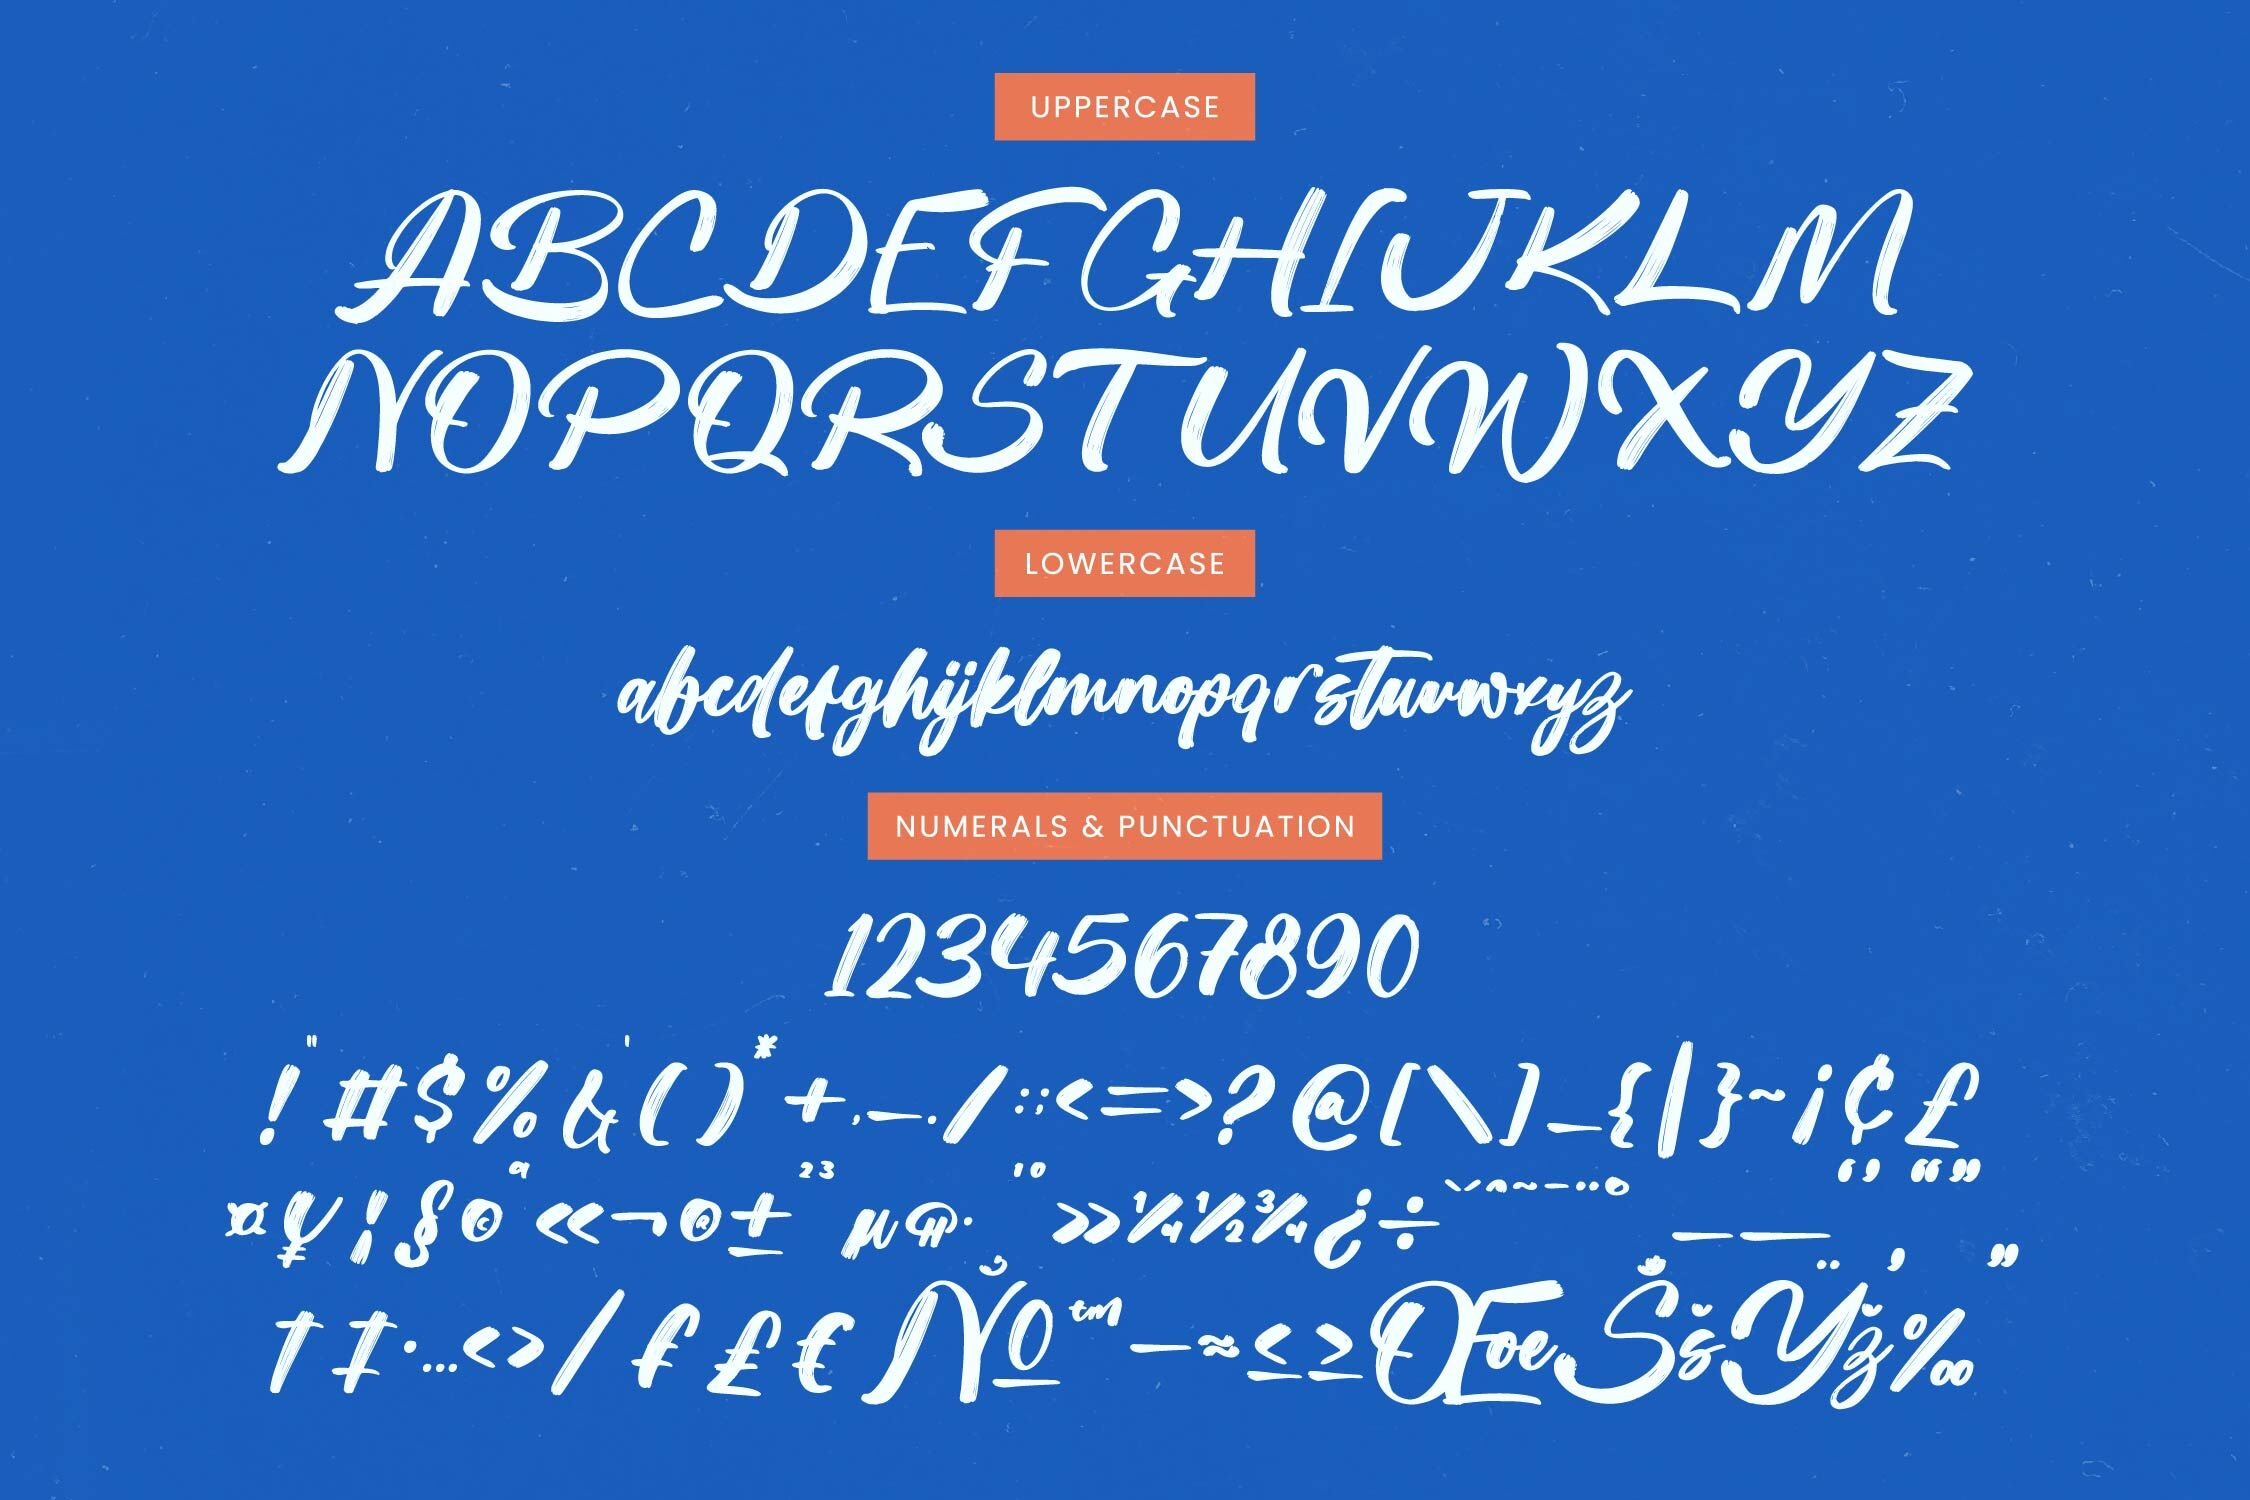 UPPERCASE
ABCDEFGHIJKLM
NOPQRSTUVWXYZ
LOWERCASE
abcdefghijklmnopqrstuvwxyz
NUMERALS & PUNCTUATION
1234567890
!"#$%&'()*+,-./:;<=>?@[\]_{|}~¡¢£
¤¥¦§©ª«¬®±²³µ¶·¸¹º»¼½¾¿÷ˇ^˜¯¨˚–—‘’“”
†‡•…‹›⁄ƒ₤€№™−≈≤≥ŒœŠšŸž‰